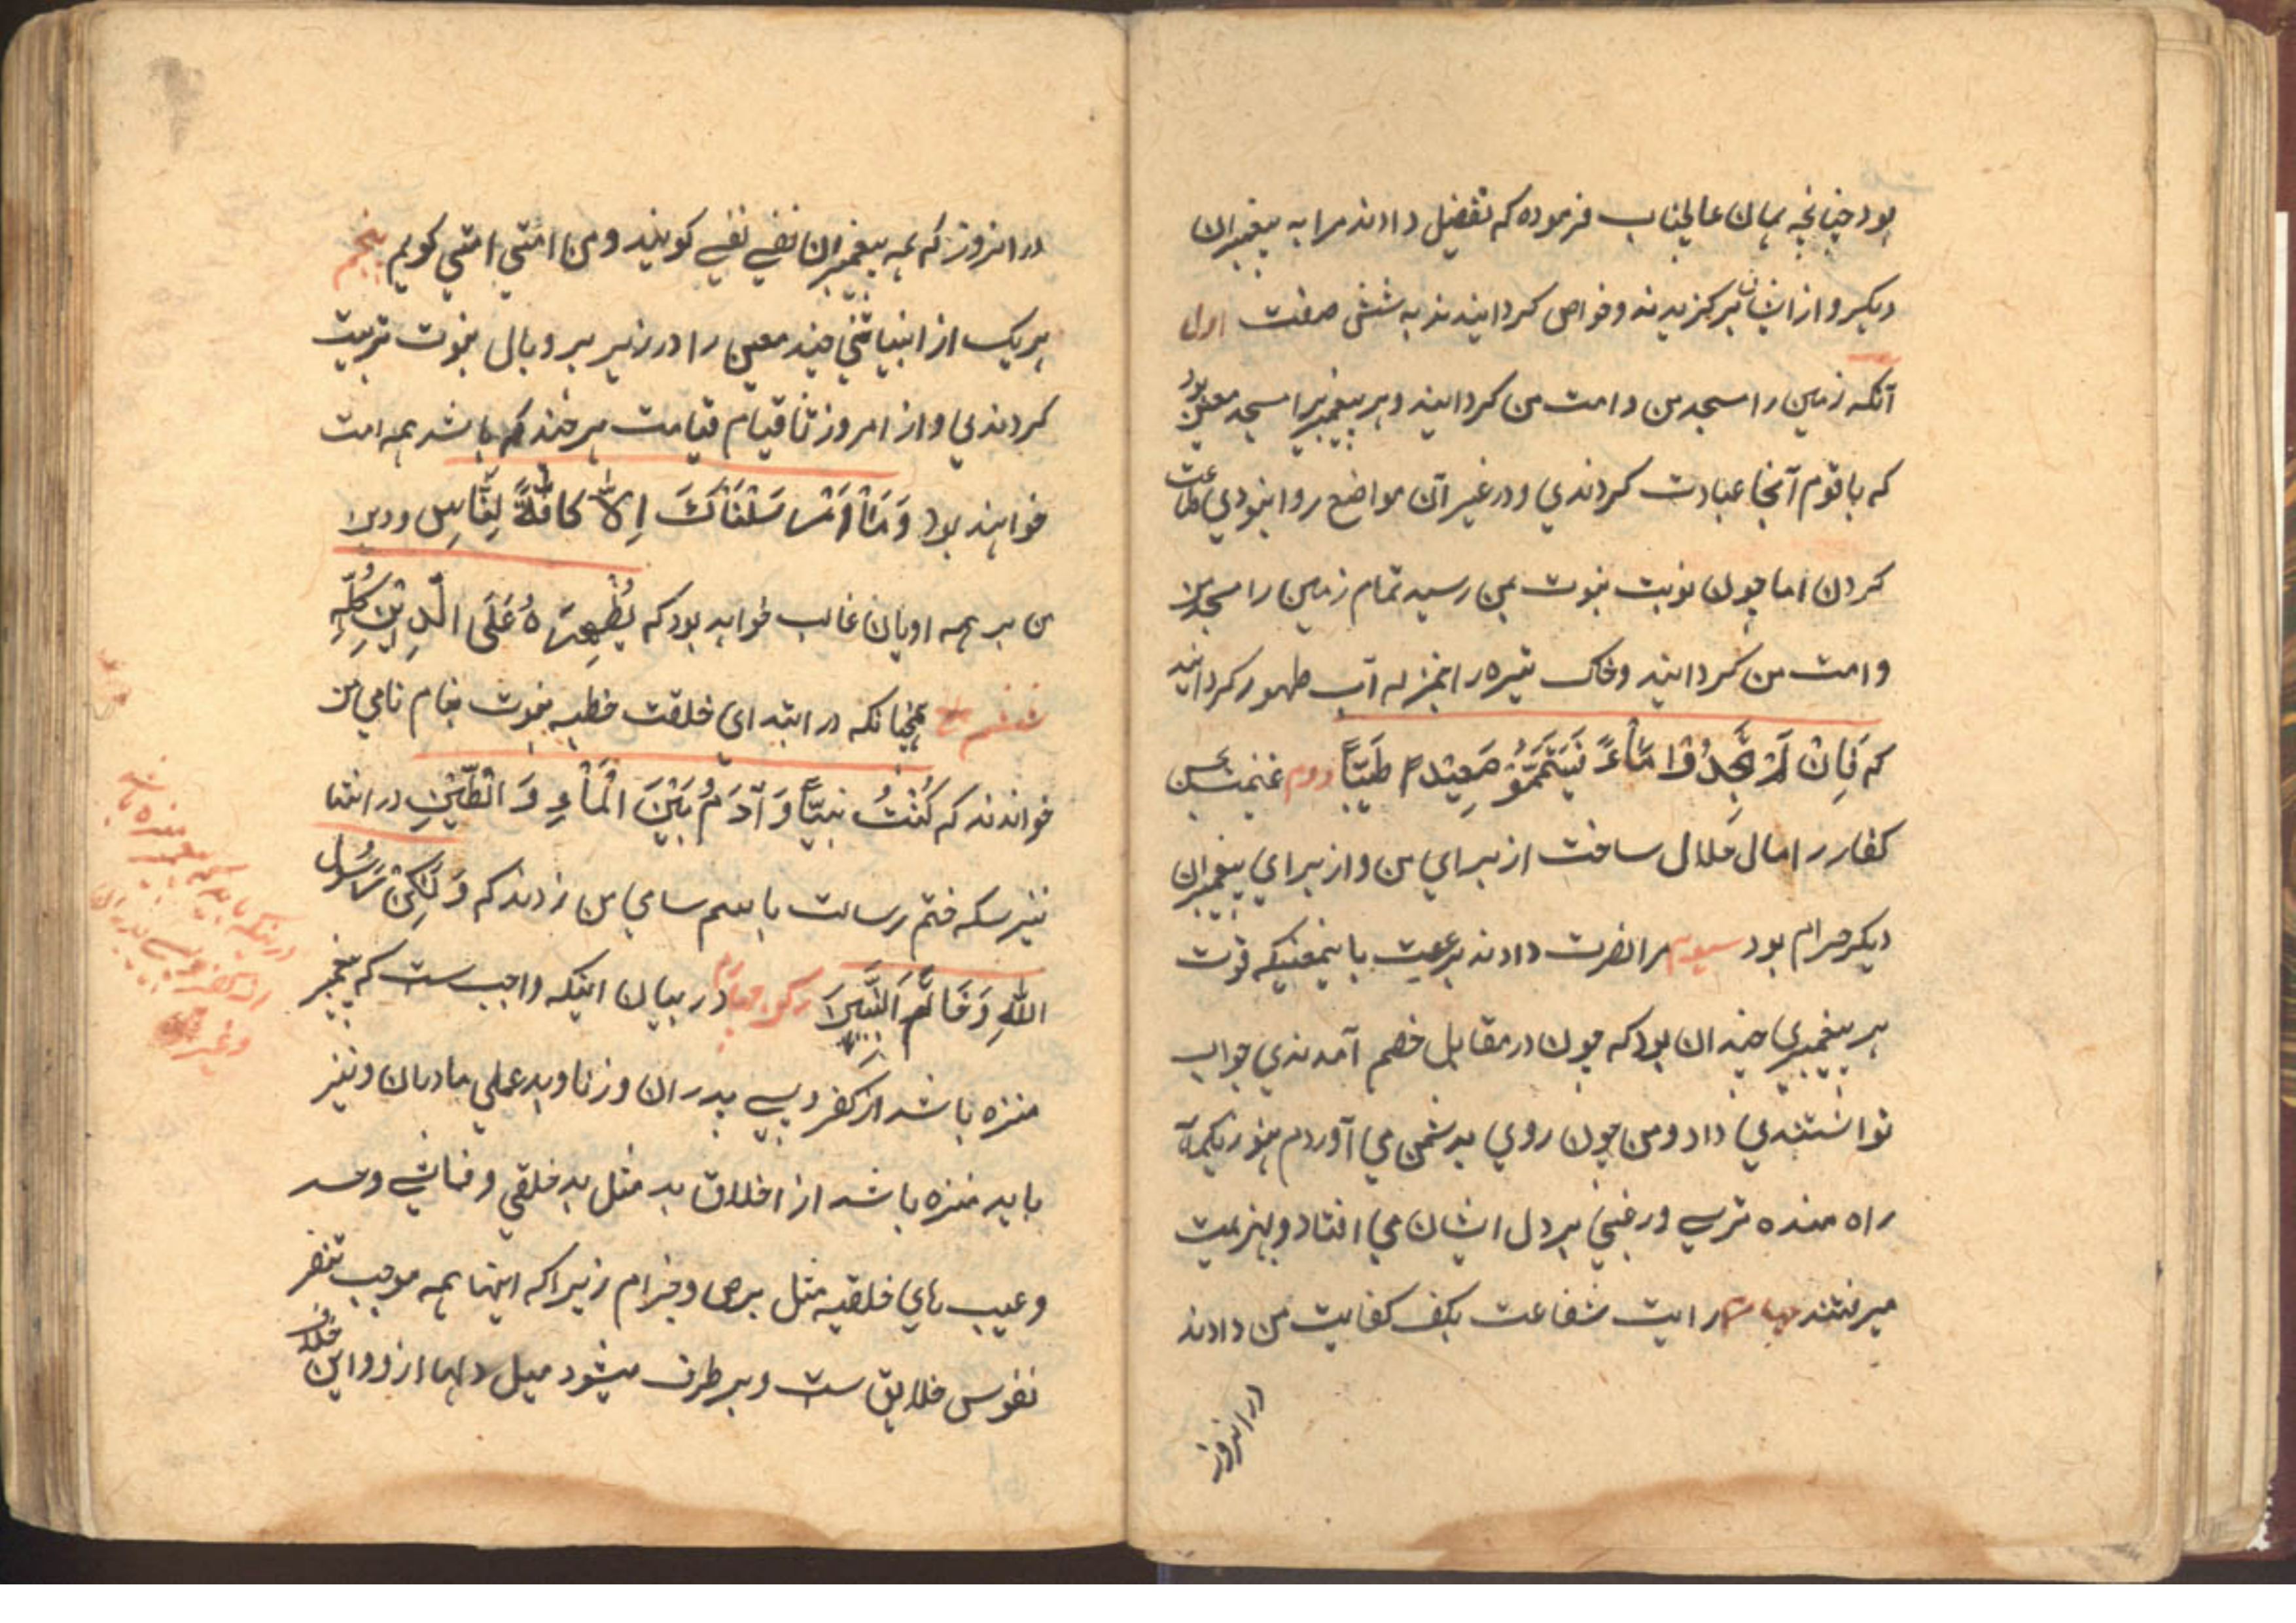 بود چنانچه بهمان عالیجناب فرموده که تفضیل دادند مرا به پیغمبران
دیکر و از ایشان برکزیدند و خواص کردانیدند به شش صفت اول
آنکه زمین را مسجد من و امت من کردانید و هر پیغمبریرا مسجد معین بود
که با قوم آنجا عبادت کردندی و در غیر آن مواضع روا نبودی طاعت
کردن اما چون نوبت نبوت بمن رسید تمام زمین را مسجد من
و امت من کردانید و خاک تیره را بمنزله آب طهور کردانید
که فَاِنْ لَمْ تَجِدُوْا مَاْءً فَتَيَمَّمُوْ صَعِيْدً طَيِّبًا دوم غنیمت
کفار را مال حلال ساخت از برای من و از برای پیغمبران
دیکر حرام بود سیوم مرا نصرت دادند برعیت باینمعنیکه قوت
هر پیغمبری چندان بود که چون در مقابل خصم آمدندی جواب
توانستندی داد و من چون روی بدشمن می آوردم هنوز یکماه
راه مانده ترس و رعبی بر دل ایشان می افتاد و بهزیمت
میرفتند چهارم رایت شفاعت بکف کفایت من دادند
در انروز
در انروز که همه پیغمبران نفسی نفسی کویند و من امتی امتی کویم پنجم
هر یک از انبیا تنی چند معین را در زیر پر و بال نبوت تربیت
کردندی و از امروز تا قیام قیامت هر چند که باشد همه امت
خواهند بود وَمَاْ اَرْسَلْنَاكَ اِلّا كَافَّةً لِلنَّاسِ و دین
من بر همه ادیان غالب خواهد بود که يُظْهِرَهُ عَلَى الّدِيْنِ كُلِّهِ
ششم همچنانکه در ابتدای خلقت خطبه نبوت بنام نامی من
خواندند که كُنْتُ نَبِيًّا وَ آدَمُ بَيْنَ الْمَاْءِ وَ الْطّيْنِ در انتها
نیز سکه ختم رسالت باسم سامی من زدند که وَلٰكِنْ رَسُوْلُ
اللّٰهِ وَخَاتَمَ النَّبِيّيْنَ رکن چهارم در بیان اینکه واجب ست که پیغمبر
منزه باشد از کفر و بی پدران و زنا و بدعملی مادران و نیز
باید منزه باشد از اخلاق بد مثل بدخلقی و و حسد
و عیب های خلقیه مثل برص و جزام زیرا که اینها همه موجب تنفر
نفوس خلایق ست و برطرف میشود میل دلها از او و این خلاف
در اینکه باید که پیغمبر منزه باشد
از کفر و بی پدران
و غیره